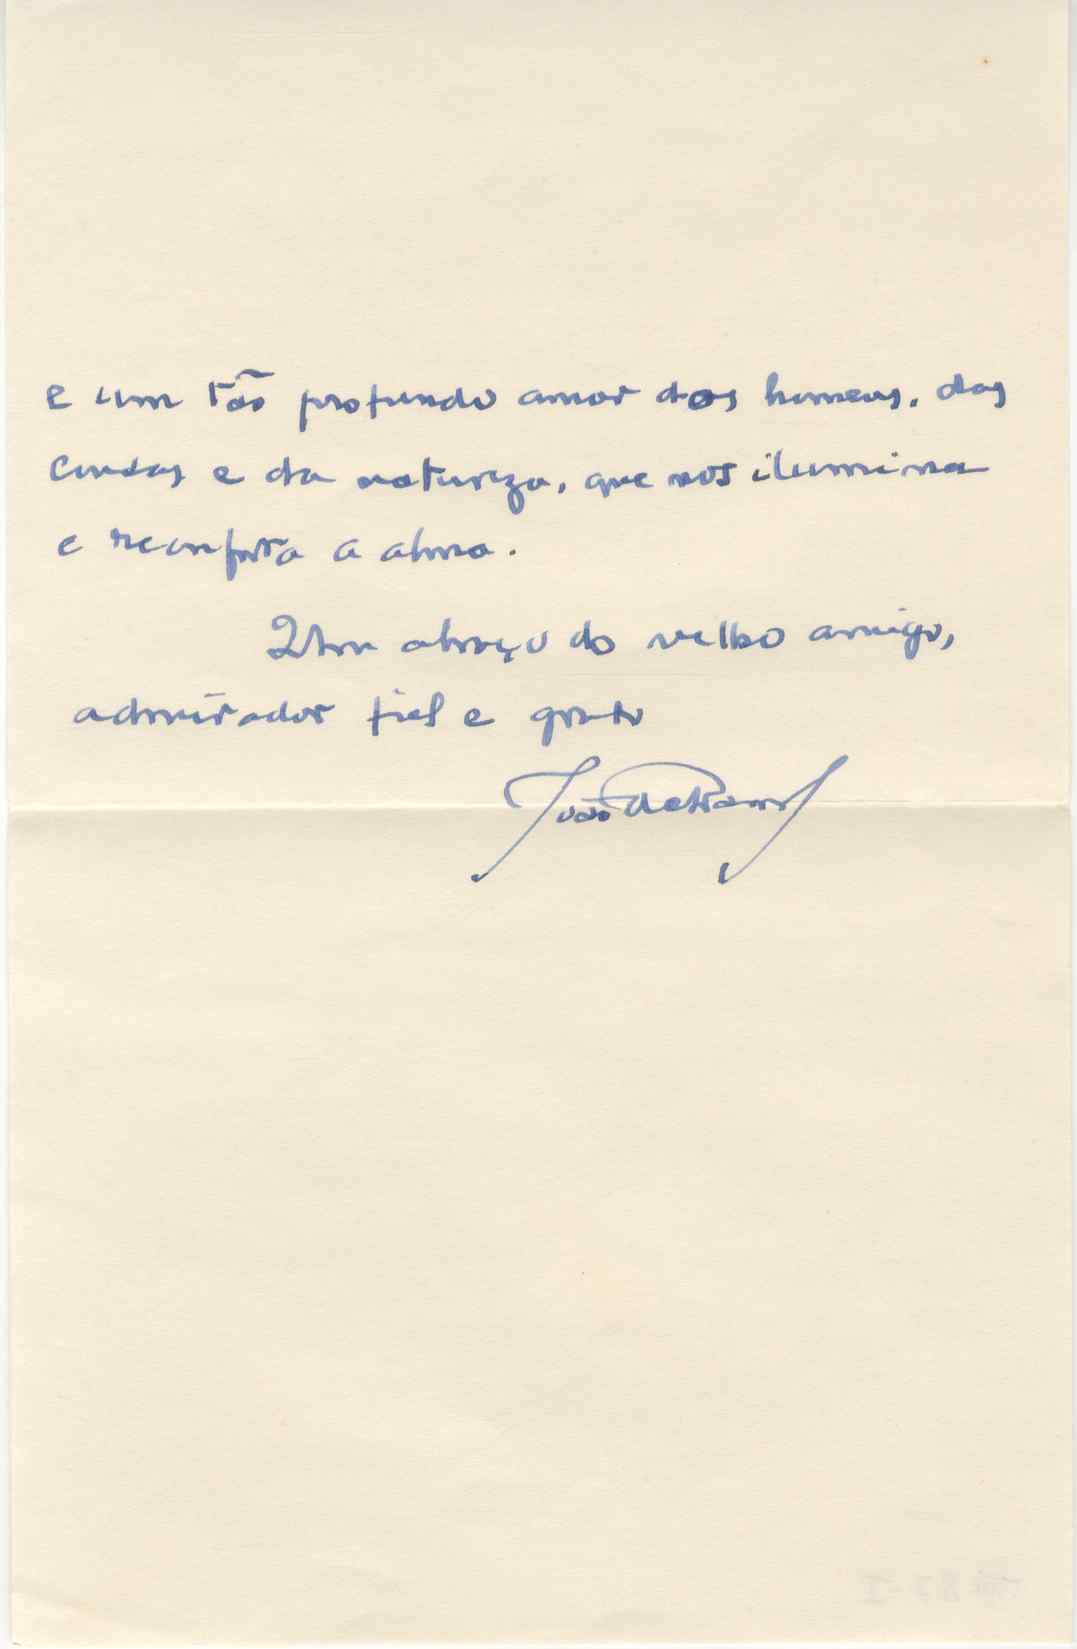 e um tão profundo amor dos homens, das
cousas e da natureza, que nos ilumina
e reconforta a alma.
Um abraço do velho amigo,
admirador fiel e grato
João de Barros